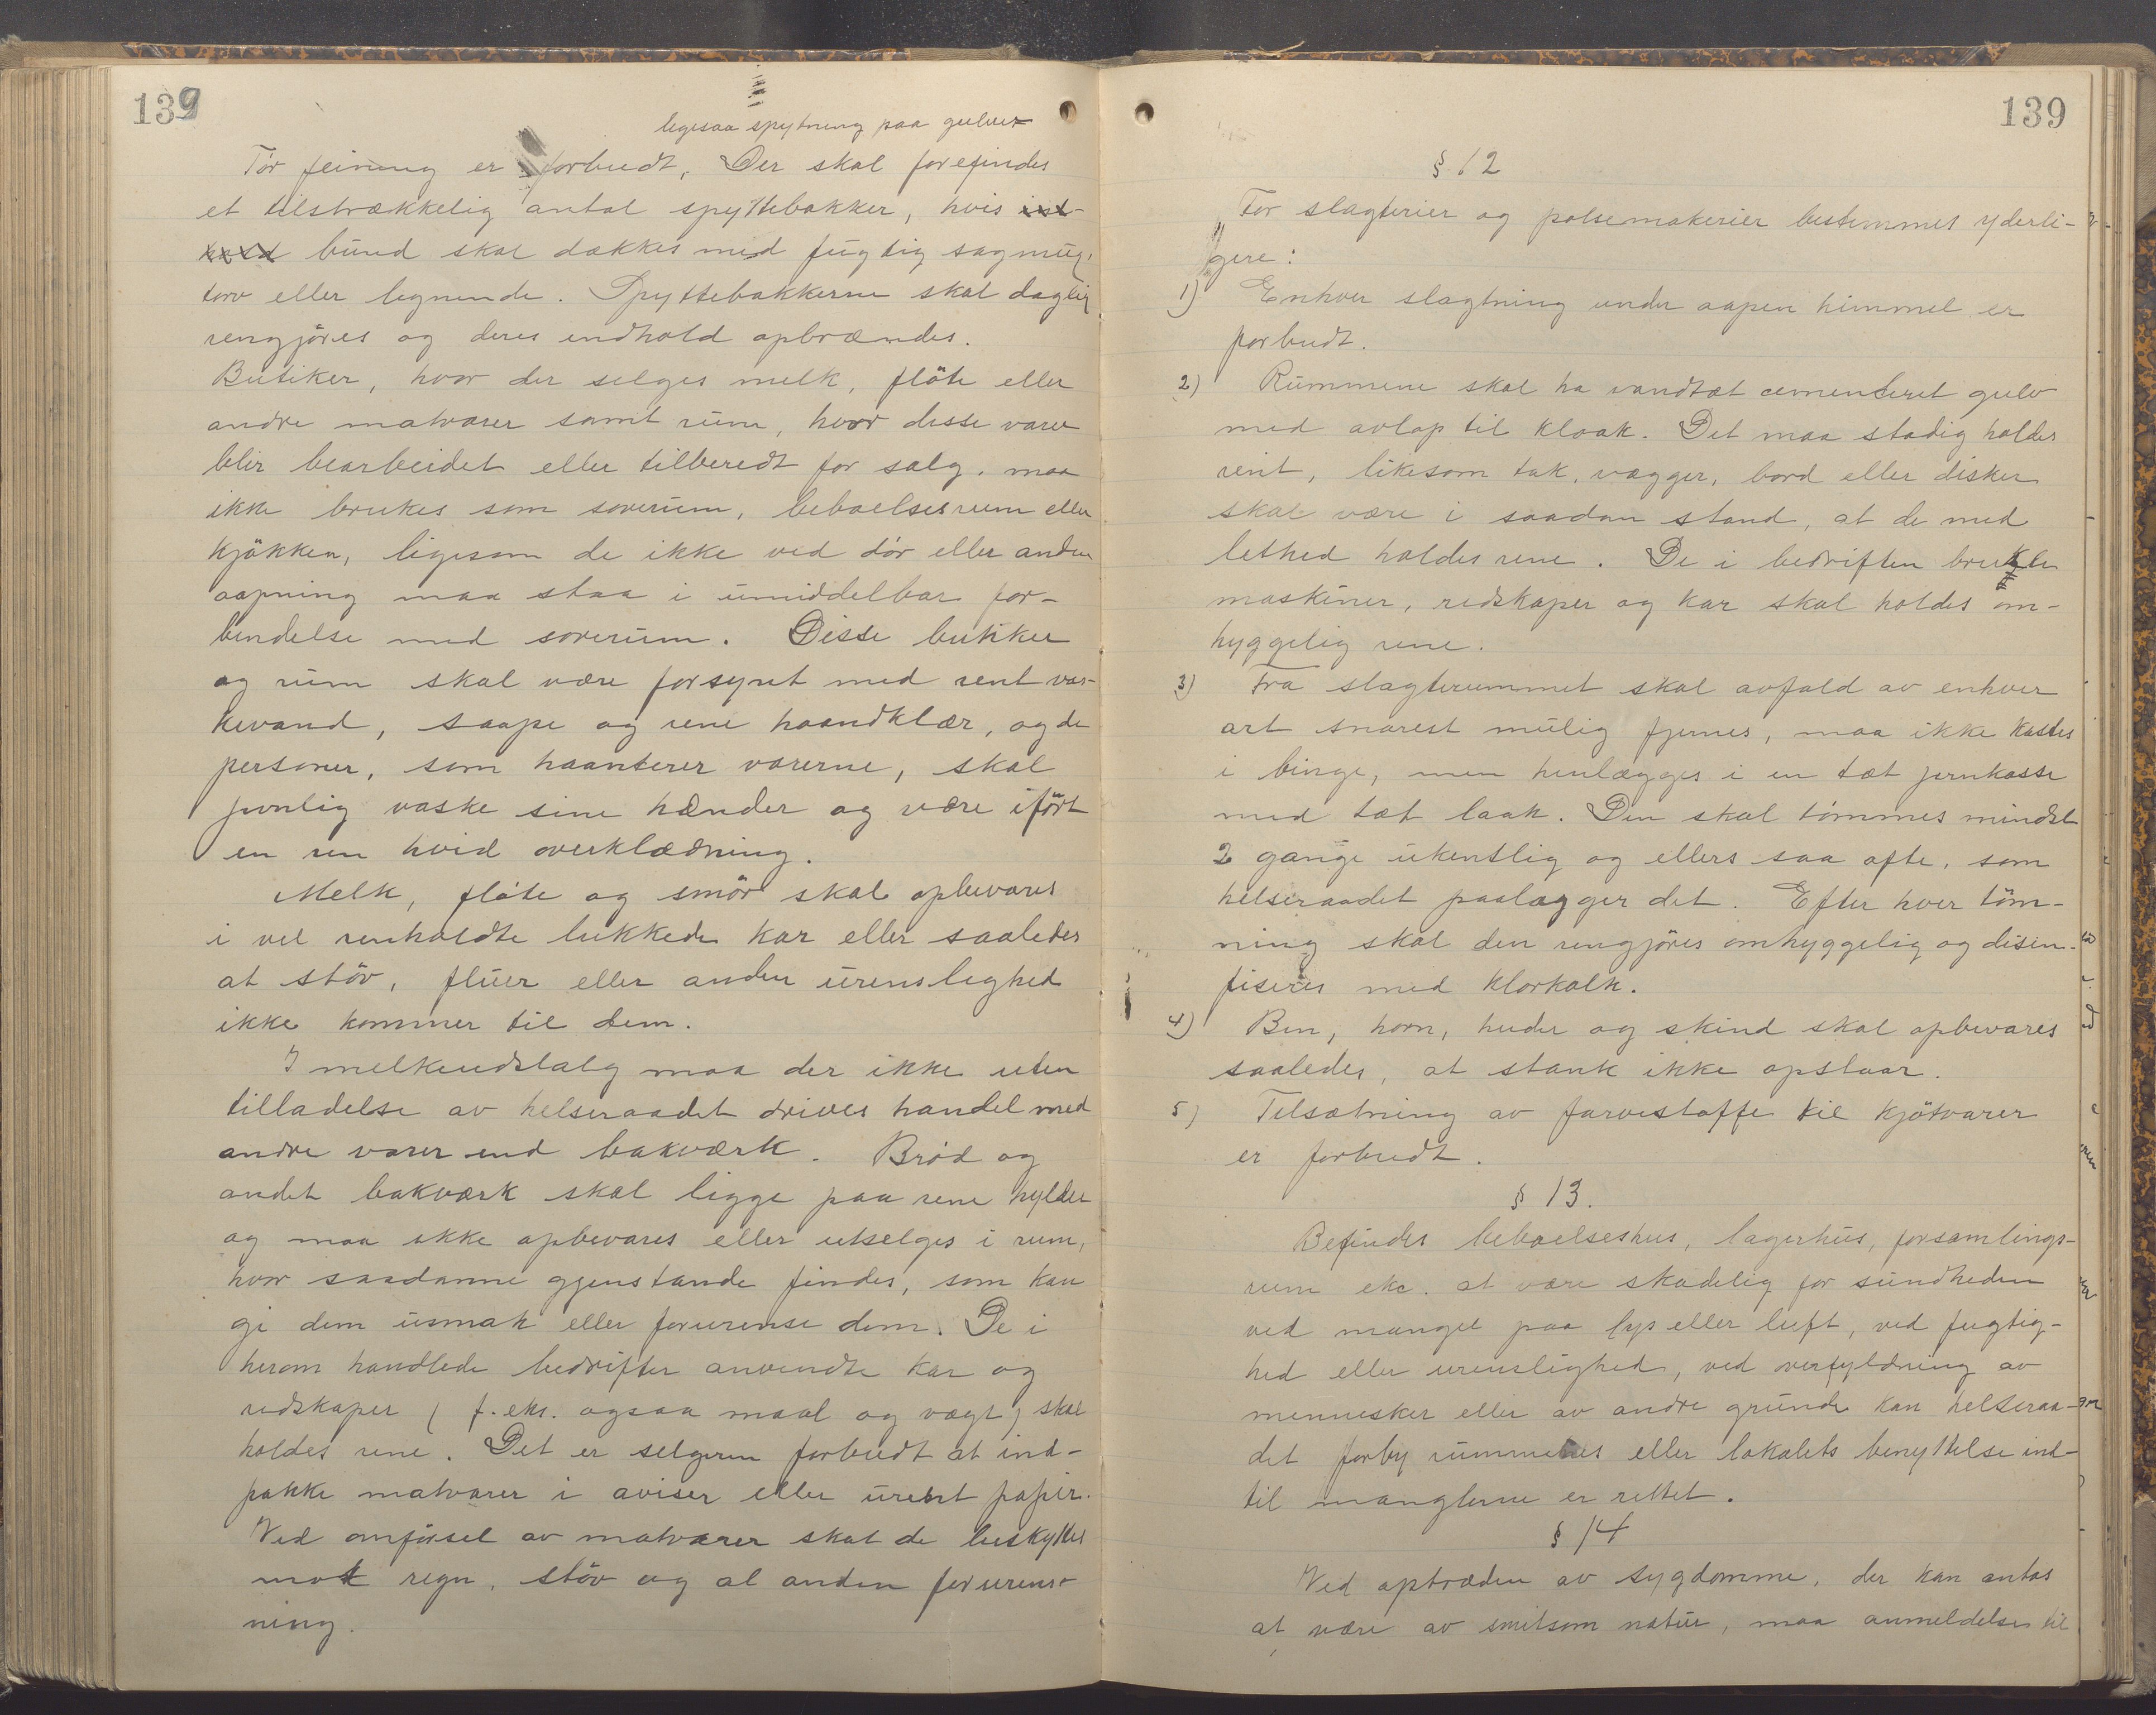 139
legesaa spytning paa gulver
Tör feining er forbudt, Der skal forefindes
et tilstrækkelig antal spyttebakker, hvis ind-
hold bund skal dækkes med fugtig sagmug,
torv eller lignende. Spyttebakkerne skal daglig
rengjöres og deres indhold opbrændes.
Butiker, hvor der selges melk, flöte eller
andre matvarer samt rum, hvor disse varer
blir bearbeidet eller tilberedt for salg, maa
ikke brukes som soverum, beboelsesrum eller
kjökken, ligesom de ikke ved dör eller anden
aapning maa staa i umiddelbar for-
bindelse med soverum. Disse butikker
og rum skal være forsynt med rent vas-
kevand, saape og rene haandklær, og de
personer, som haanterer varerne, skal
jevnlig vaske sine hænder og være ifört
en ren hvid overklædning.
Melk, flöte og smör skal opbevares
i vel renholdte lukkede kar eller saaledes
at stöv, fluer eller anden urenslighed
ikke kommer til dem.
I melkeudslalg maa der ikke uten
tilladelse av helseraadet drives handel med
andre varer end bakværk. Bröd og
andet bakværk skal ligge paa rene hylder
og maa ikke opbevares eller utselges i rum,
hvor saadanne gjenstande findes, som kan
gi dem usmak eller forurense dem. De i
herom handlede bedrifter anvendte kar og
redskaper ( f. eks. ogsaa maal og vægt ) skal
holdes rene. Det er selgeren forbudt at ind-
pakke matvarer i aviser eller urent papir.
Ved omförsel av matvarer skal de beskyttes
mot regn, stöv og al anden forurens-
ning.
139
§ 12
For slagterier og pølsemakerier bestemmes yderli-
gere:
1) Enhver slagtning under aapen himmel er
forbudt.
2) Rummene skal ha vandtæt cementeret gulv
med avlop til kloak. Det maa stadig holdes
rent, likesom tak, vægger, bord eller disker
skal være i saadan stand, at de med
lethed holdes rene. De i bedriften brukte
maskiner, redskaper og kar skal holdes om-
hyggelig rene.
3) Fra slagterummet skal avfald av enhver
art snarest mulig fjernes, maa ikke kastes
i binge, men henlægges i en tæt jernkasse
med tæt laak. Den skal tömmes mindst
2 gange ukentlig og ellers saa ofte, som
helseraadet paalægger det. Efter hver töm-
ning skal den rengjöres omhyggelig og disin-
fiseres med klorkalk.
4) Ben, horn, huder og skind skal opbevares
saaledes, at stank ikke opstaar.
5) Tilsætning av farvestoffe til kjötvarer
er forbudt.
§ 13.
Befindes beboelseshus, lagerhus, forsamlings-
rum ekc. at være skadelig for sundheden
ved mangel paa lys eller luft, ved fugtig-
hed eller urenslighed, ved overfyldning av
mennesker eller av andre grunde kan helseraa-
det forby rummenes eller lokalets benyttelse ind-
til manglerne er rettet.
§ 14
Ved optræden av sygdomme, der kan antas
at være av smitsom natur, maa anmeldelse til